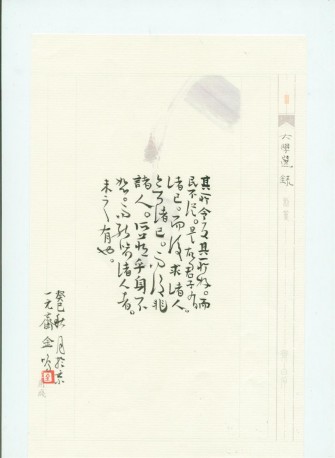 大學選錄
其所令反其所好。而
民不從。是故君子有
諸己。而後求諸人。
無諸己。而後非
諸人。所藏乎身不
恕。而能喻諸人者。
未之有也。
秋月於京
一元齋